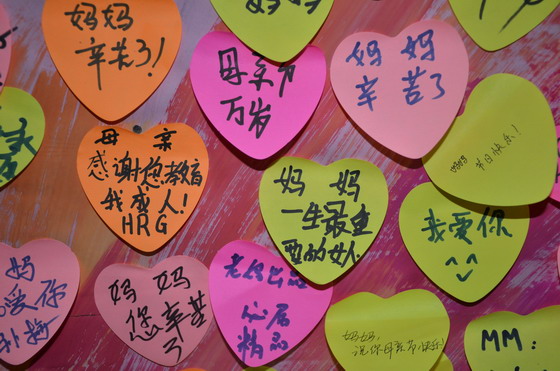 妈妈
辛苦了!
妈妈
母亲节
万岁
妈 妈
辛 苦了
妈妈
节日快乐!
母 亲
感谢您教育
我成人!
HRG
妈 妈
一生最重
要的女人
我爱你
^^
妈
爱你
妈 妈
您辛苦
了
老妈出品
必属
精品
妈妈:
祝你母亲节快乐!
MM: